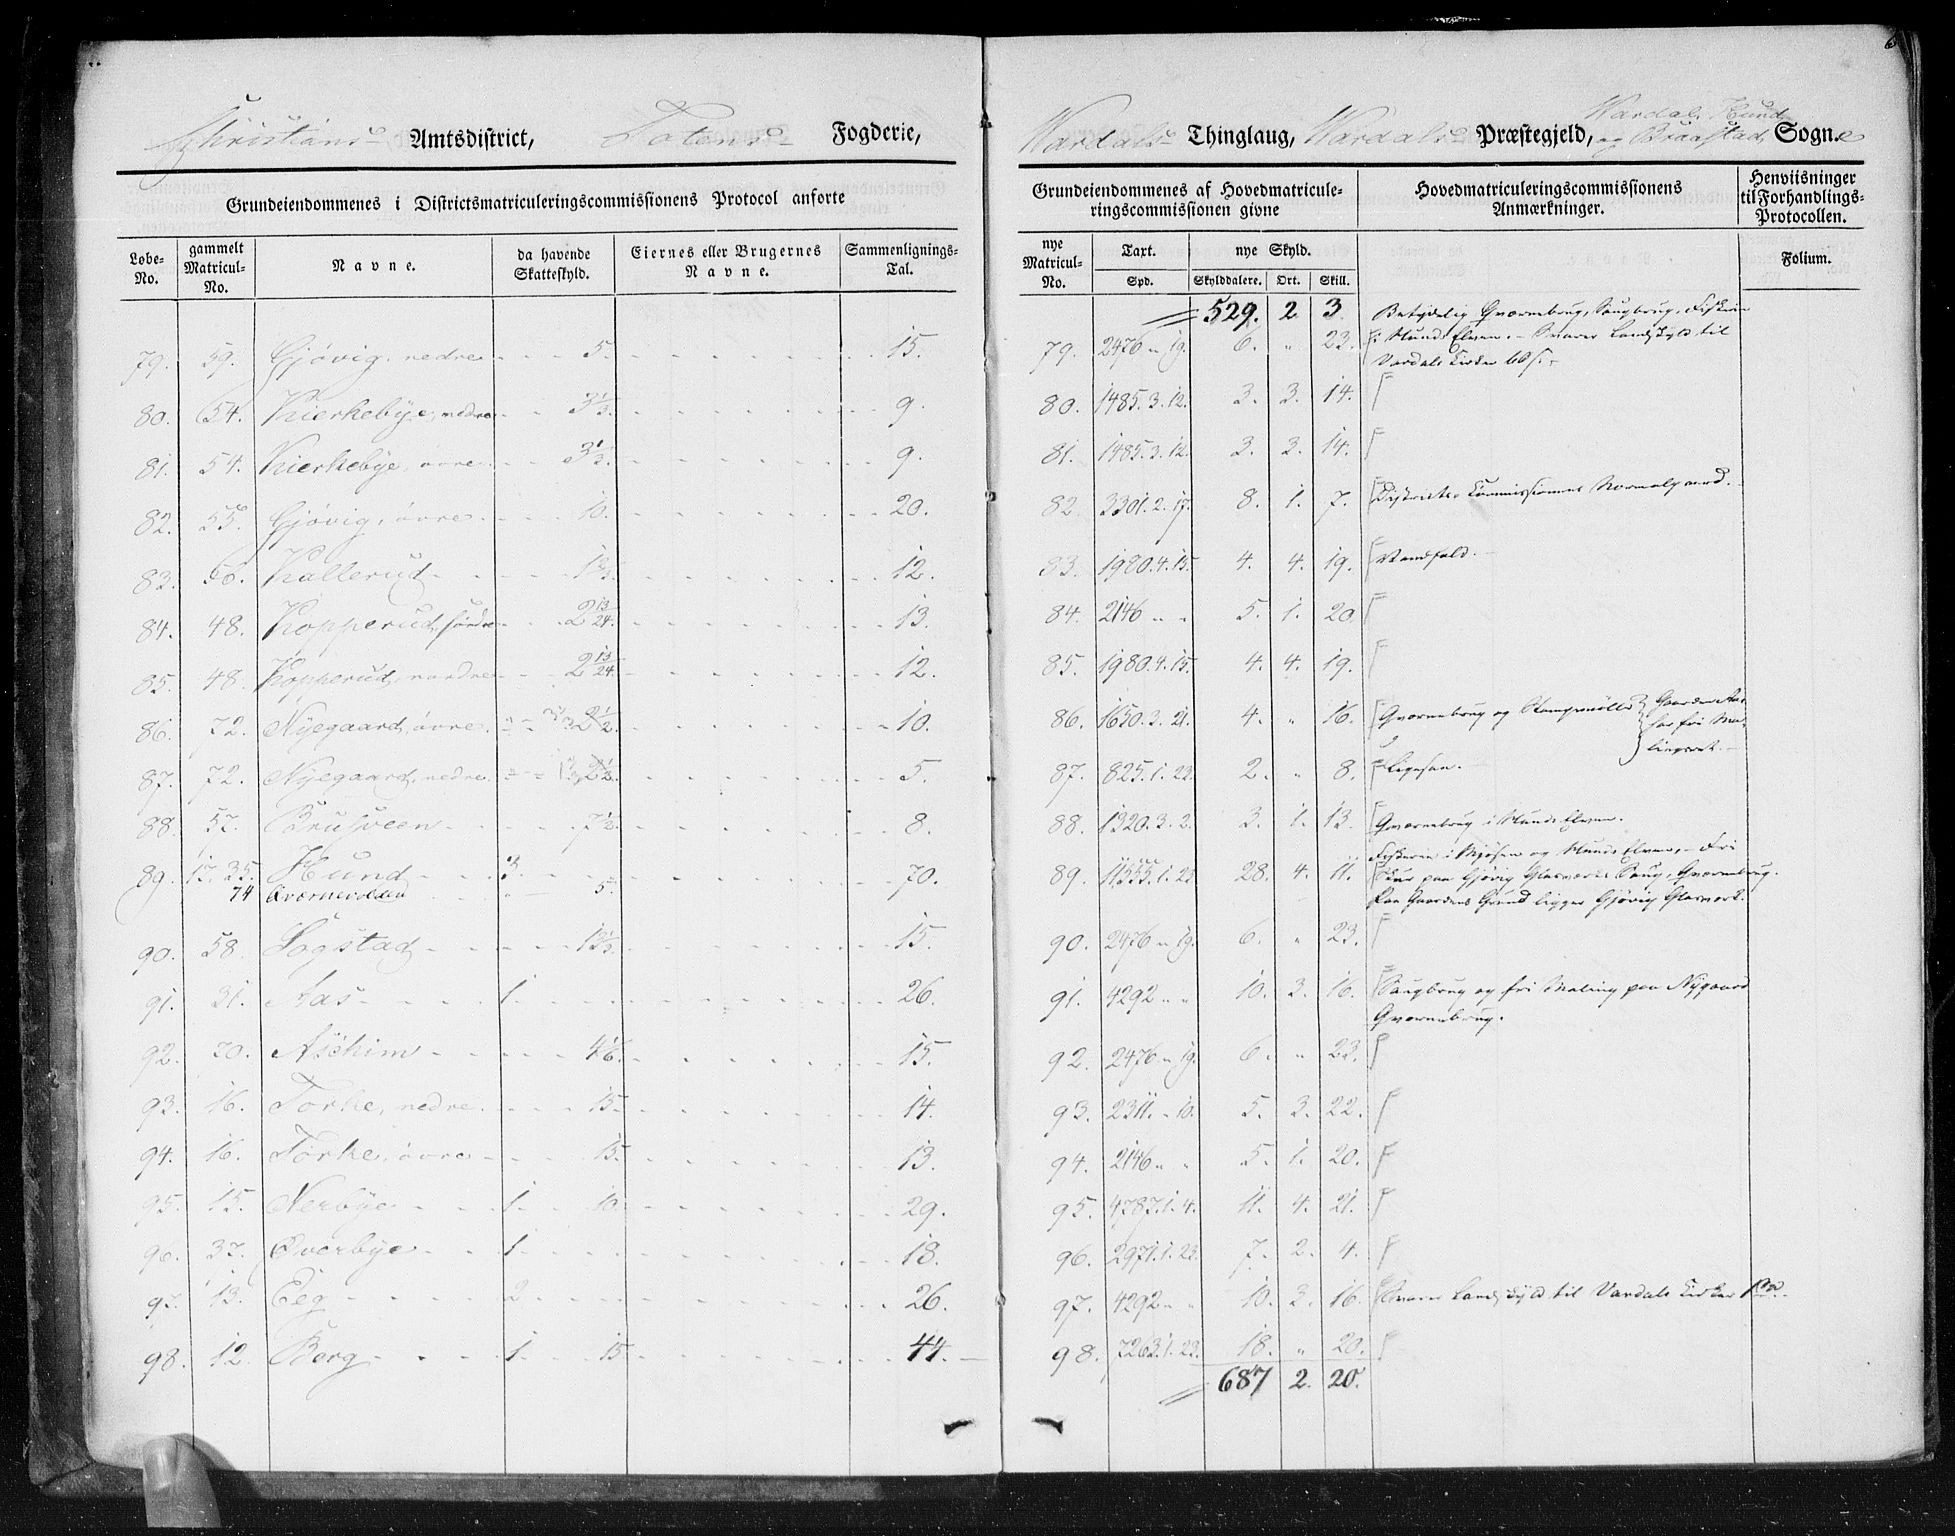 6
Christians Amtsdistrict, Totens Fogderie,
Grundeiendommenes i Districtsmatriculeringscommissionens Protocol anførte
Løbe-No. gammelt Matricul-No. Navne. da havende Skatteskyld. Eiernes eller Brugernes Navne. Sammenlignings-Tal.
79. 59. Gjövig, nedre 5. 15.
80. 54. Kierkebye, nedre 3 1/2. 9.
81. 54. Kierkebye, övre 3 1/2. 9.
82. 55. Gjövig, övre 10. 20.
83. 50. Kallerud 12.
84. 48. Kopperud, söndre 2 13/24. 13.
85. 48. Kopperud, nordre 2 13/24. 12.
86. 72. Nyegaard, övre 10.
87. 72. Nyegaard, nedre 5.
88. 57. Brusveen 7 1/2. 8.
89. 17. 35. Hund 3. 70.
74 Qværnevolden " 5.
90. 58. Sogstad 15.
91. 31. Aas 1. 26.
92. 70. Aschim 15.
93. 16. Torke, nedre 15. 14.
94. 16. Torke, övre 15. 13.
95. 15. Nerbye 1. 10. 29.
96. 37. Overbye 1. 18.
97. 13. Eeg 2. 26.
98. 12. Berg 1. 15 44.
Wardals Thinglaug, Wardals Præstegjeld, Wardal, Hund og Braastad Sogne
Grundeiendommenes af Hovedmatriculeringscommissionen givne
Hovedmatriculeringscommissionens Anmærkninger.
Henviisninger til Forhandlings-Protocollen.
nye Matricul-No. Taxt. Spd. nye Skyld. Skylddalere. Ort. Skill. Folium.
529. 2 3. Betydelig Qværnebrug, Saugbrug, Fiskerie
79. 2476 " 19. 6. " 23. i Hunds Elven. – Svarer Landskyld til
Vardals Kirke
80. 1485. 3. 12. 3. 3. 14.
81. 1485. 3. 12. 3. 3. 14.
82. 3301. 2. 17. 8. 1. 7. Districts Commissionens Normalgaard.
83. 1980. 4. 15. 4. 4. 19. Vandfald.
84. 2146 " " 5. 1. 20.
85. 1980. 4. 15. 4. 4. 19.
86. 1650. 3. 21. 4. " 16. Qværnebrug og Stampemølle } Gaarden Aas har fri Malingsret.
87. 825. 1. 23. 2. " 8. Ligesaa.
88. 1320. 3. 2. 3. 1. 13. Qværnebrug i Hunds Elven.
89. 11555. 1. 23 28. 4. 11. Fiskerie i Mjøsen og Hunds Elven, – Fri
Skur paa Gjøvig Glasværks Saug, Qværnebrug.
Paa Gaardens Grund ligger Gjøvig Glasværk.
90. 2476 " 19. 6. " 23.
91. 4292 " " 10. 3. 16. Saugbrug og fri Maling paa Nygaard
Qværnebrug.
92. 2476 " 19. 6. " 23.
93. 2311. " 10. 5. 3. 22.
94. 2146 " " 5. 1. 20.
95. 4787. 1. 4. 11. 4. 21.
96. 2971. 1. 23. 7. 2. 4.
97. 4292 " " 10. 3. 16. Svarer Landskyld til Vardals Kirke
98. 7263. 1. 23. 18. " 20.
687 2. 20.